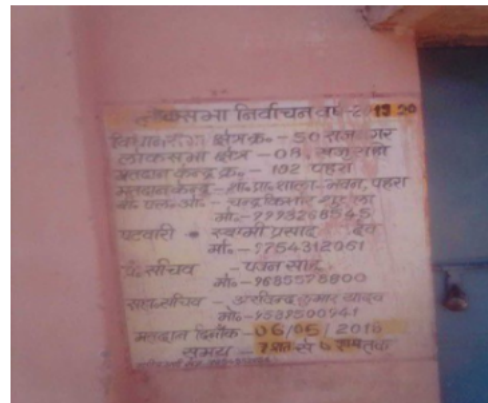 लोकसभा निर्वाचन वर्ष-2019 20
विधानसभा क्षेत्र क्र.- 50 राजनगर
लोकसभा क्षेत्र - 08, खजुराहो
मतदान केन्द्र क्र.- 192 पहरा
मतदान केन्द्र - शा.प्रा.शाला-भवन, पहरा
बी. एल. ओ. - चन्द्र किशोर शुक्ला
मो.-
पटवारी - स्वामी प्रसाद
मो.- 9754312061
सचिव - पवन साहू
मो.-9685575800
सहा.सचिव - अरविन्द कुमार यादव
मो.-
मतदान दिनाँक - 06/05/201
समय -